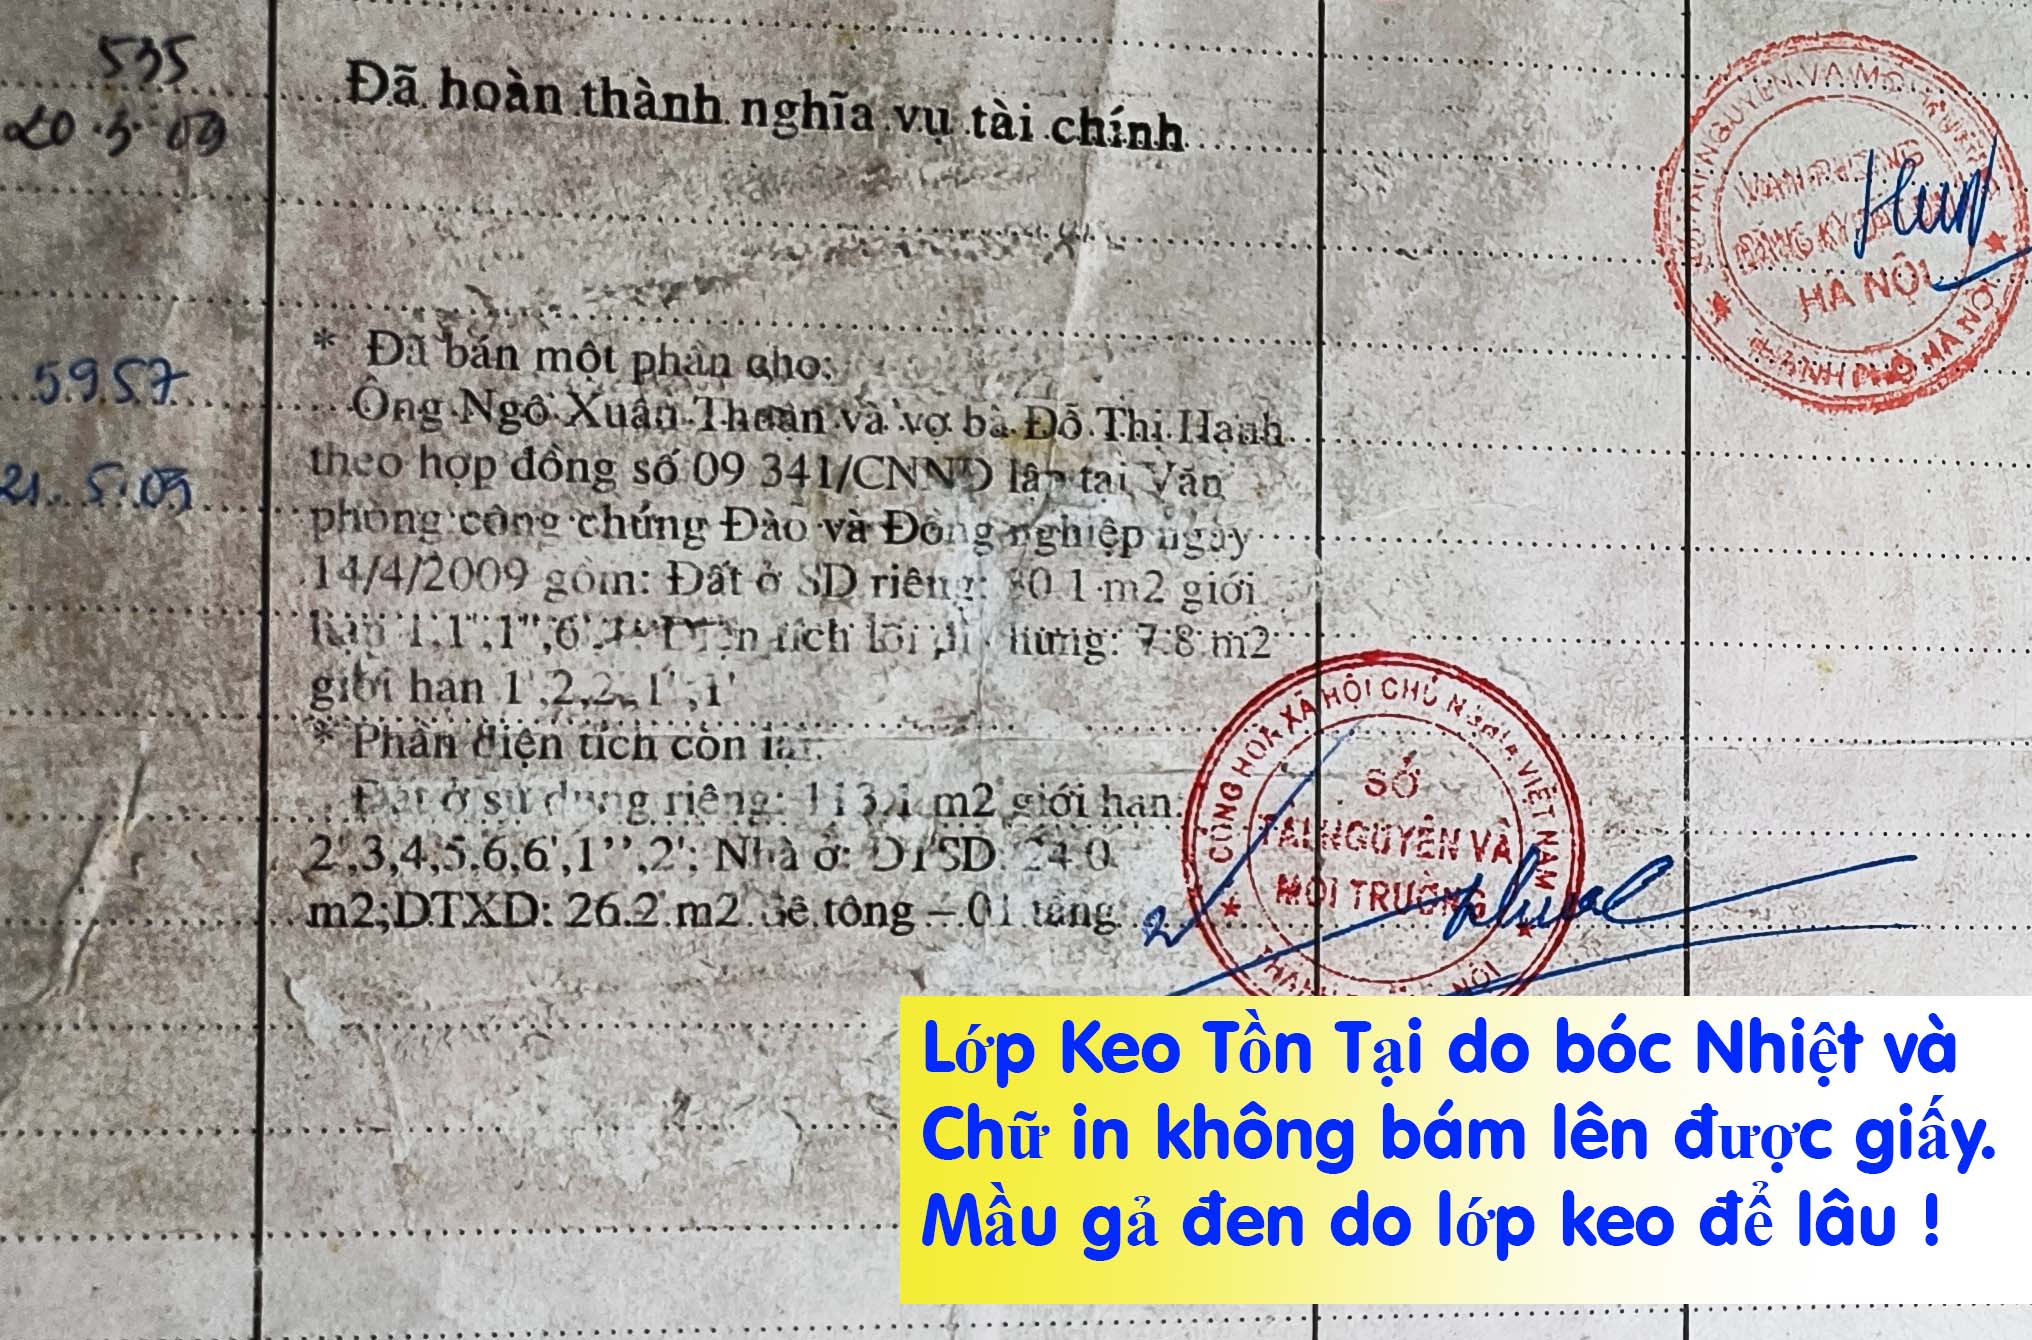 535
Đã hoàn thành nghĩa vụ tài chính
20.3.09
VĂN PHÒNG
ĐĂNG KÝ
HÀ NỘI
THÀNH PHỐ HÀ NỘI
* Đã bán một phần cho:
5957
Ông Ngô Xuân Thuận và vợ bà Đỗ Thị Hạnh
theo hợp đồng số 09 341/CNNĐ lập tại Văn
21.5.09
phòng công chứng Đào và Đồng nghiệp ngày
14/4/2009 gồm: Đất ở SD riêng: 0.1 m2 giới
hạn 1,1",1''',6', Diện tích lối đi hung: 7.8 m2
giới hạn 1',2,2
* Phần diện tích còn lại:
Đất ở sử dụng riêng: 113.1 m2 giới hạn
2',3,4,5,6,6',1'',2'; Nhà ở: DTSD: 24.0
m2;DTXD: 26.2 m2 Bê tông – 01 tầng
CỘNG HOÀ XÃ HỘI CHỦ NGHĨA VIỆT NAM
SỞ
TÀI NGUYÊN VÀ
MÔI TRƯỜNG
Lớp Keo Tồn Tại do bóc Nhiệt và
Chữ in không bám lên được giấy.
Mầu gả đen do lớp keo để lâu !